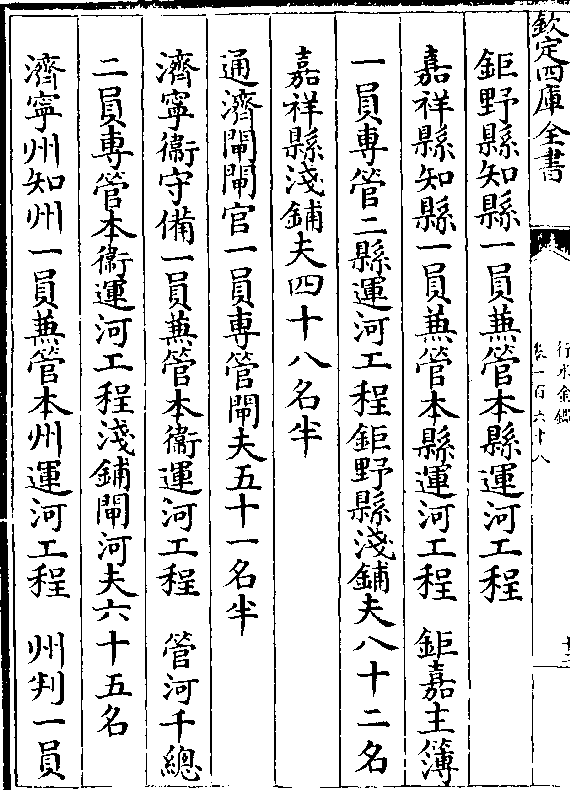 欽定四庫全書
行水金鑑
卷一百六十八
鉅野縣知縣一員兼管本縣運河工程
嘉祥縣知縣一員兼管本縣運河工程　鉅嘉主簿
一員專管二縣運河工程鉅野縣淺鋪夫八十二名
嘉祥縣淺鋪夫四十八名半
通濟閘閘官一員專管閘夫五十一名半
濟寧衞守備一員兼管本衞運河工程　管河千總
二員專管本衞運河工程淺鋪閘河夫六十五名
濟寧州知州一員兼管本州運河工程　州判一員